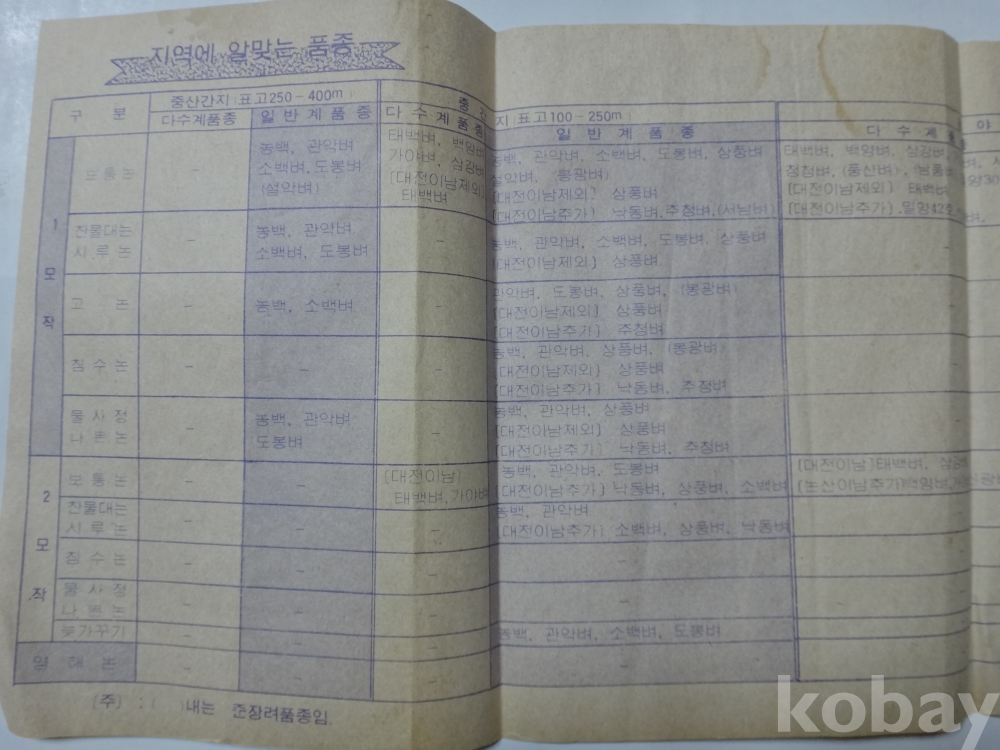 지역에 알맞는 품종
구 분
중산간지(표고250-400m)
지(표고100-250m)
야
다수계품종 일반계품종 다수계품종 일반계품종 다수계
1모작
보통논
농백, 관악벼
소백벼, 도봉벼
(설악벼)
태백벼, 백양벼
가야벼, 삼강벼
[대전이남제외]
태백벼
농백, 관악벼, 소백벼, 도봉벼, 상풍벼
설악벼, (봉광벼)
[대전이남제외] 상풍벼
[대전이남추가] 낙동벼, 추청벼, (서남벼)
태백벼, 백양벼, 삼강벼
정청벼, (풍산벼),
[대전이남제외] 태백벼
[대전이남추가] 밀양42호
찬물대는
시루논
-
농백, 관악벼
소백벼, 도봉벼
-
농백, 관악벼, 소백벼, 도봉벼, 상풍벼
[대전이남제외] 상풍벼
-
고 논
-
농백, 소백벼
-
관악벼, 도봉벼, 상풍벼, (봉광벼)
[대전이남제외] 상풍벼
[대전이남추가] 추청벼
-
침수논
-
-
-
농백, 관악벼, 상풍벼, (봉광벼)
[대전이남제외] 상풍벼
[대전이남추가] 낙동벼, 추청벼
-
물사정
나쁜논
-
농백, 관악벼
도봉벼
-
농백, 관악벼, 상풍벼
[대전이남제외] 상풍벼
[대전이남추가] 낙동벼, 추청벼
-
2모작
보통논
-
-
[대전이남]
태백벼, 가야벼
농백, 관악벼, 도봉벼
[대전이남추가] 낙동벼, 상풍벼, 소백벼
[대전이남] 태백벼, 삼강
[논산이남추가] 백양벼
찬물대는
시루논
-
-
-
농백, 관악벼
[대전이남추가] 소백벼, 상풍벼, 낙동벼
-
침수논
-
-
-
-
-
물사정
나쁜논
-
-
-
-
-
늦가꾸기
-
-
-
농백, 관악벼, 소백벼, 도봉벼
-
염해논
-
-
-
-
(주) : ( )내는 준장려품종임.
kobay